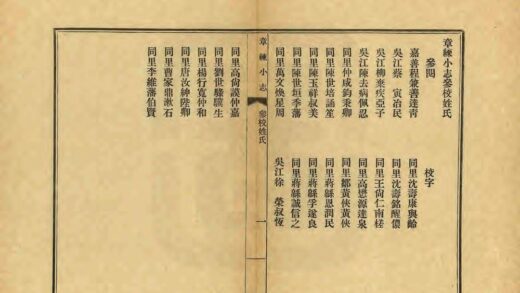 章練小志參校姓氏
參閱
嘉善程兼善達青
吳江蔡寅冶民
吳江柳棄疾亞子
吳江陳去病佩忍
同里仲咸鈞秉卿
同里陳世培誦笙
同里陳玉祥叔美
同里陳世垣季藩
同里萬文煥星周
校字
同里沈壽康與齡
同里沈壽銘醒儂
同里王尙仁南槎
同里高懋源達泉
同里鄒黃俠黃俠
同里蔣縣恩潤民
同里蔣縣孚遂良
同里蔣縣誠信之
吳江徐榮叔恆
章練小志
參校姓氏
一
同里高尙謨仲嘉
同里劉世驥生
同里楊行寬仲和
同里唐汝紳陛卿
同里曹家鼎漱石
同里李維藩伯賢